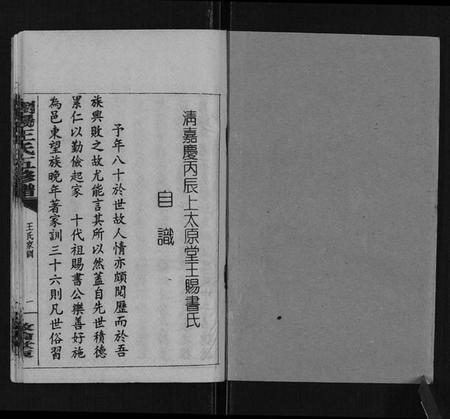 清嘉慶丙辰上太原堂王賜書氏
自識
予年八十於世故人情亦頗閱歷而於吾
族興敗之故尤能言其所以然蓋自先世積德
累仁以勤儉起家 十代祖賜書公樂善好施
為邑東望族晚年著家訓三十六則凡世俗習
王氏五修譜
王氏家訓
一